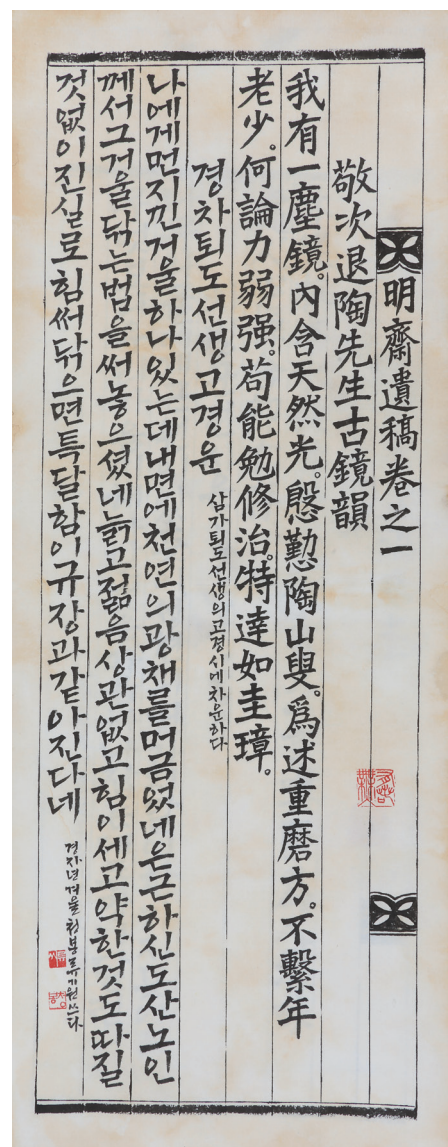 明齋遺稿卷之一
敬次退陶先生古鏡韻
我有一塵鏡。內含天然光。慇懃陶山叟。爲述重磨方。不繫年
老少。何論力弱强。苟能勉修治。特達如圭璋。
경차퇴도선생고경운 삼가퇴도선생의고경시에차운하다
나에게먼지낀거울하나있는데내면에천연의광채를머금었네은근하신도산노인
께서그거울닦는법을써놓으셨네늙고젊음상관없고힘이세고약한것도따질
것없이진실로힘써닦으면특달함이규장과같아진다네
경자년겨울청봉류기원쓰다